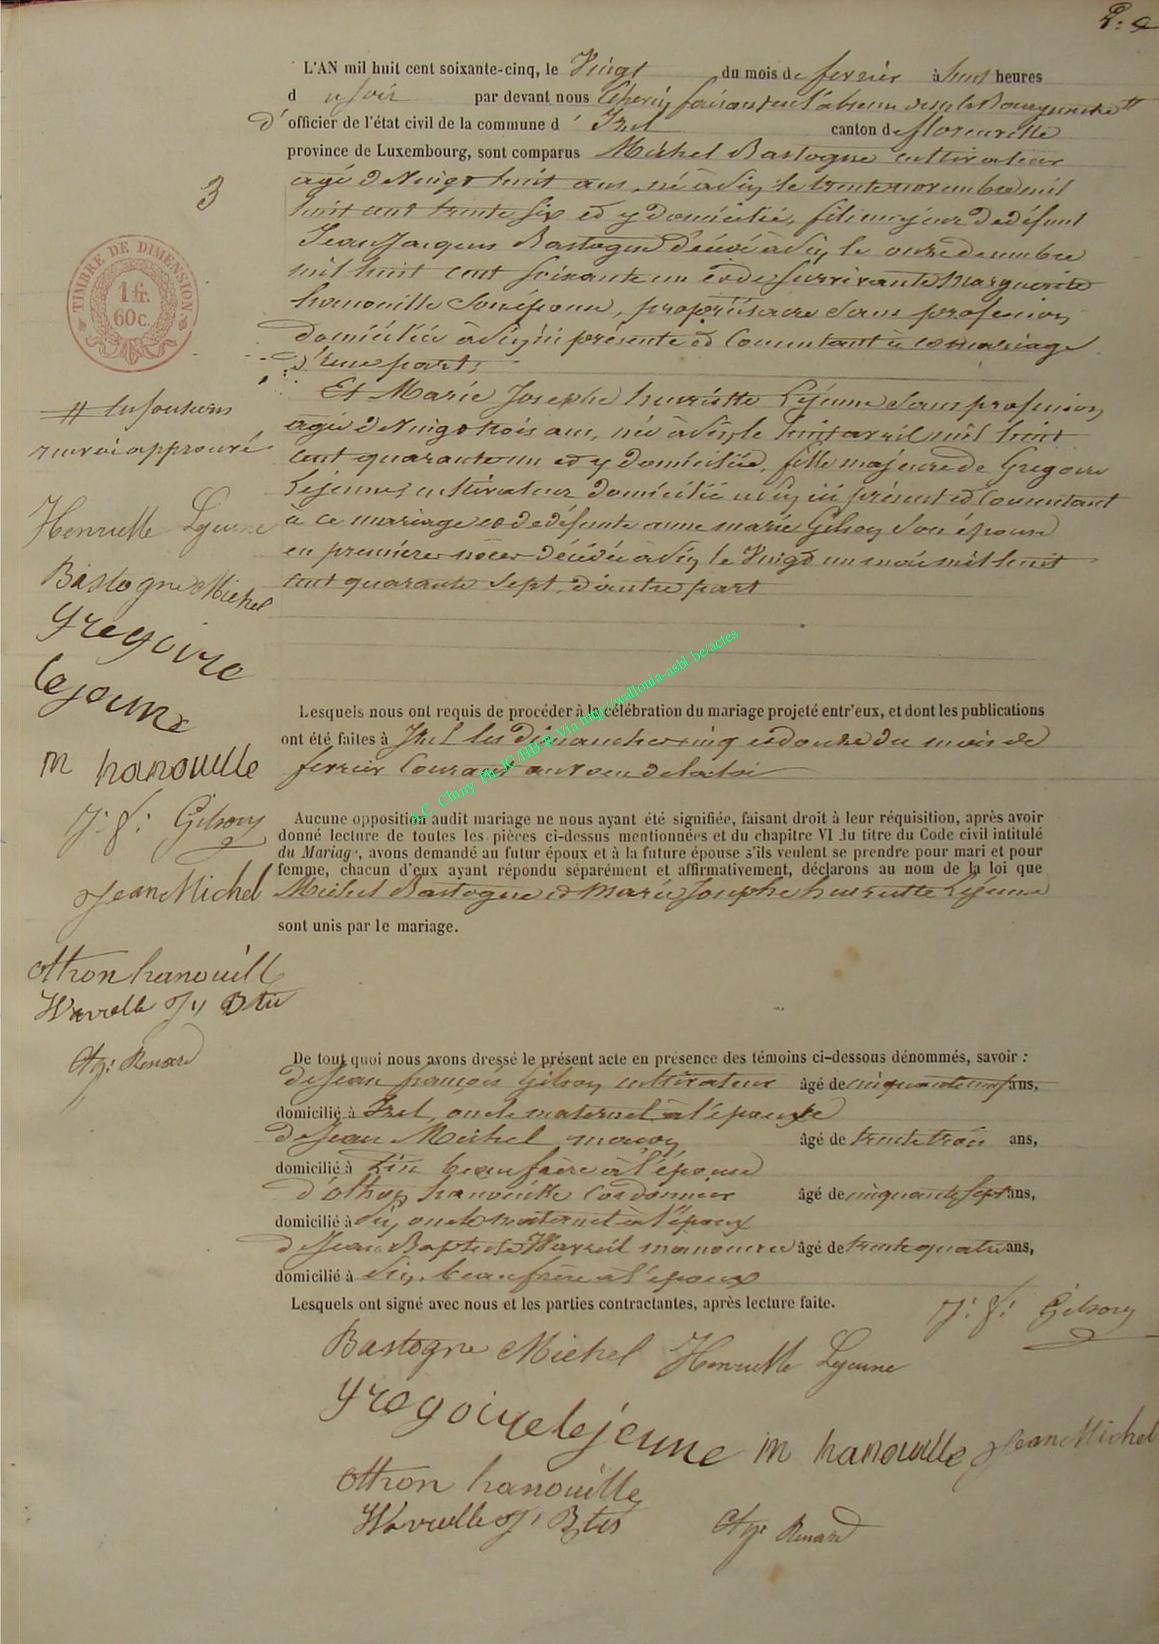 3
TIMBRE DE DIMENSION
1 fr.
60c.
L'AN mil huit cent soixante-cinq, le Vingt du mois de fevrier à huit heures
d u soir par devant nous Echevin faisant en l'absence du Bourgmestre #
d' officier de l'état civil de la commune d' Izel canton de florenville
province de Luxembourg, sont comparus Michel Bastogne cultivateur
agé de Vingt huit ans, né à le trente novembre mil
huit cent trente six et y domicilié, fils majeur de défunt
Jean Jacques Bastogne décédé à le onze decembre
mil huit cent soixante un et de survivante Marguerite
hanouille son épouse, propriétaire sans profession
domiciliée à ici présente et consentant à ce mariage
d'une part,
Et Marie Josephe henriette Lejeune sans profession
agée de Vingt trois ans, née à le huit avril mil huit
cent quarante un et y domiciliée, fille majeure de Gregoire
Lejeune cultivateur domicilié à ici présent et consentant
à ce mariage et de défunte anne marie Gilson son épouse
en première noces décédée à le Vingt un mai mil huit
cent quarante sept, d'autre part
# les fonctions
renvoi approuvé
Henriette Lejeune
Bastogne Michel
gregoire
lejeune
m hanouille
J. f. Gilson
Jean Michel
othon hanouille
Wavreille J Btte
Renard
Lesquels nous ont requis de procéder à la célébration du mariage projeté entr'eux, et dont les publications
ont été faites à Izel les dimanches cinq et douze du mois de
fevrier Courant au vœu de la loi
Aucune opposition audit mariage ne nous ayant été signifiée, faisant droit à leur réquisition, après avoir
donné lecture de toutes les pièces ci-dessus mentionnées et du chapitre VI du titre du Code civil intitulé
du Mariage, avons demandé au futur époux et à la future épouse s'ils veulent se prendre pour mari et pour
femme, chacun d'eux ayant répondu séparément et affirmativement, déclarons au nom de la loi que
Michel Bastogne et Marie Josephe henriette Lejeune
sont unis par le mariage.
De tout quoi nous avons dressé le présent acte en présence des témoins ci-dessous dénommés, savoir :
de Jean françois Gilson cultivateur âgé de cinquante ans,
domicilié à Izel, oncle maternel à l'épouse
de Jean Michel maçon âgé de trente trois ans,
domicilié à beaufrère à l'épouse
d'othon hanouille Cordonnier âgé de cinquante sept ans,
domicilié à oncle maternel à l'époux
de Jean Baptiste Wavreil manœuvre âgé de trente quatre ans,
domicilié à beaufrère à l'époux
Lesquels ont signé avec nous et les parties contractantes, après lecture faite.
J. f. Gilson
Bastogne Michel Henriette Lejeune
gregoire lejeune m hanouille Jean Michel
othon hanouille
Wavreille J. Btte Renard
A.C. Chiny Ph JC HB © Via http://wallonia-asbl.be/actes